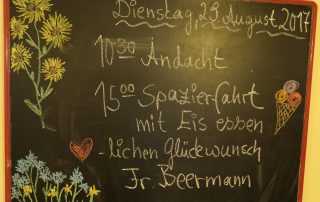 Dienstag, 29. August 2017
10³⁰ Andacht
15⁰⁰ Spazierfahrt
mit Eis essen
-lichen Glückwunsch
Fr. Beermann